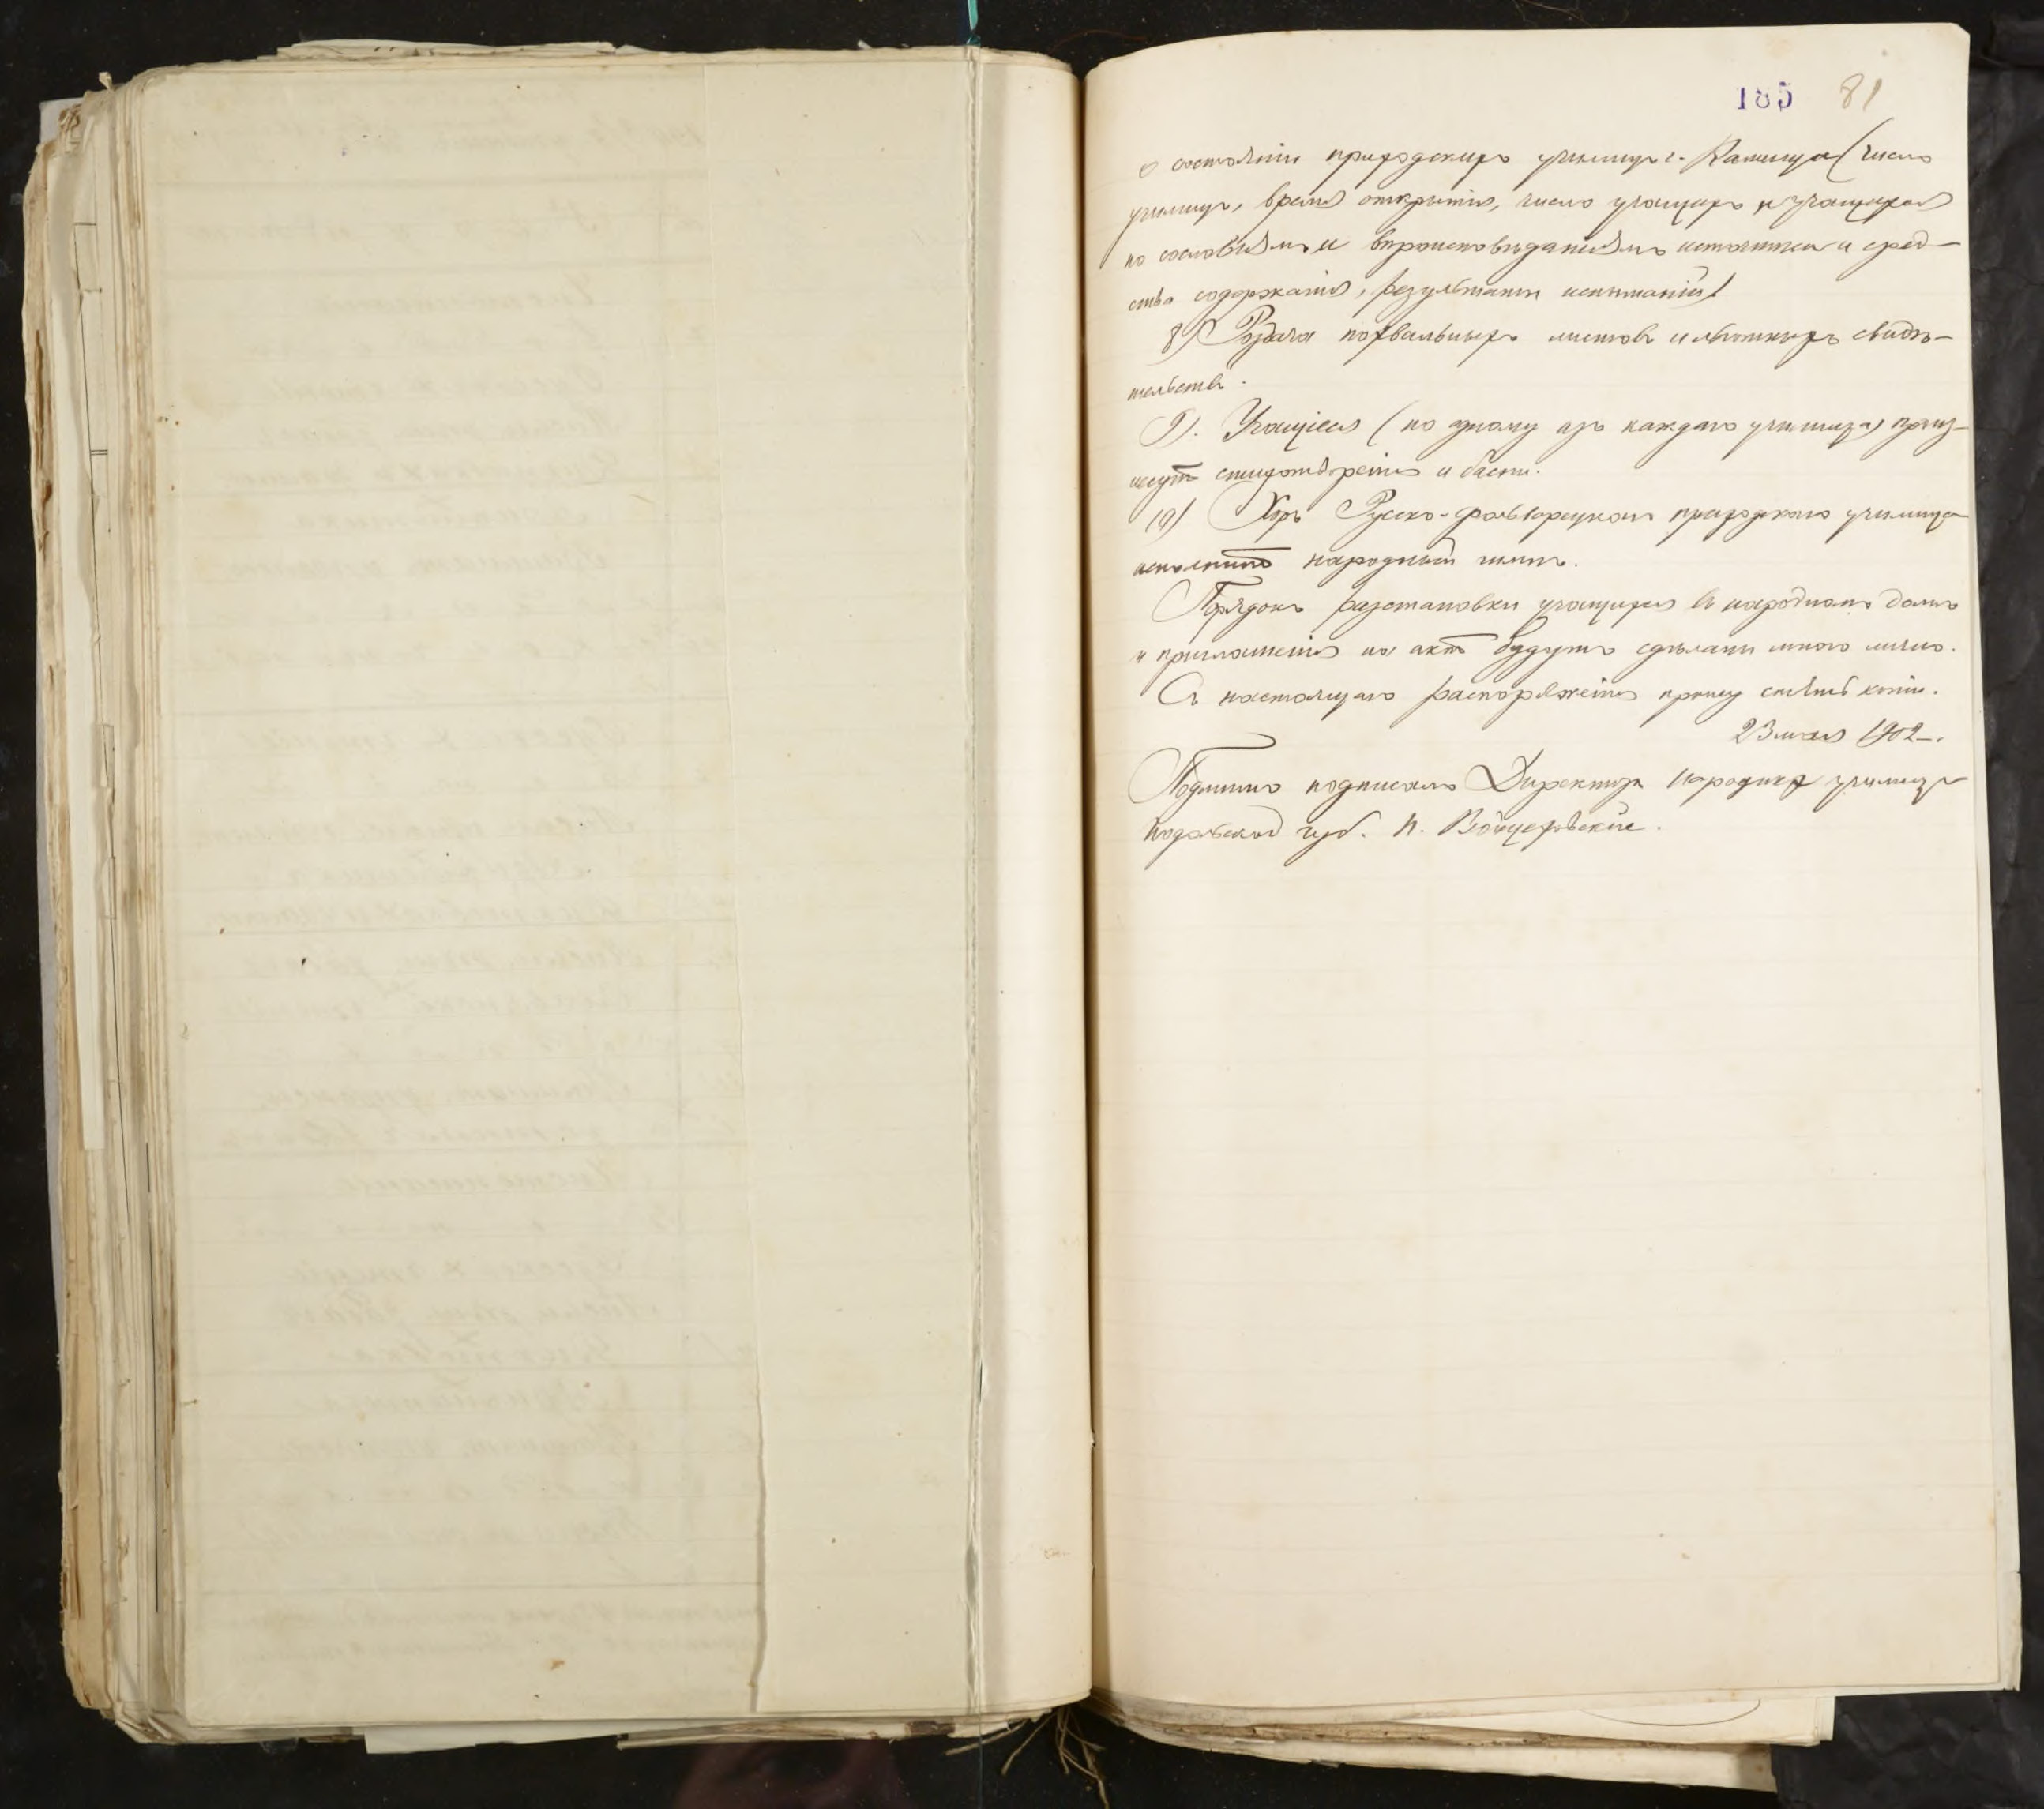 185 81
о состояніи приходскихъ училищъ г. Каменца (число
училищъ, время открытія, число учащихъ и учащихся
по сословіямъ и вѣроисповѣданіямъ источники и сред-
ства содержанія, результаты испытаній)
8) Раздача похвальныхъ листовъ и льготныхъ свидѣ-
тельствъ.
9). Учащіеся (по одному изъ каждаго училища) произ-
несутъ стихотворенія и басни.
10) Хоръ Русско-фольварецкаго приходскаго училища
исполнитъ народный гимнъ.
Порядокъ разстановки учащихся въ народномъ домѣ
и приглашенія на актъ будутъ сдѣланы мною лично.
Съ настоящаго распоряженія прошу снять копію.
23 мая 1902.
Подлинно подписалъ Директоръ народныхъ училищъ
Подольской губ. П. Войцеховскій.